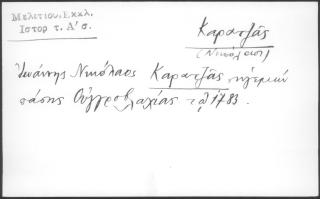 Μελετίου, Εκκλ.
Ιστορ τ. Α' σ.
Καρατζᾶς
(Νικόλαος)
Ἰωάννης Νικόλαος Καρατζᾶς ἡγεμών
πάσης Οὐγγροβλαχίας τῷ 1783.